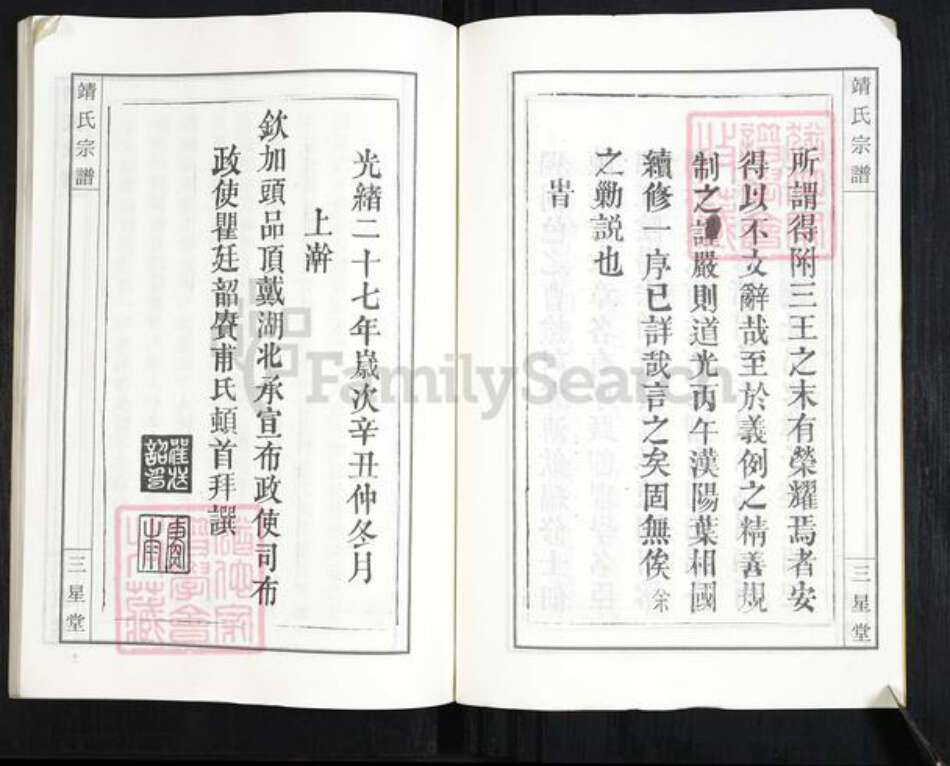 靖氏宗譜
所謂得附三王之末有榮耀焉者安
得以不文辭哉至於義例之精善規
制之謹嚴則道光丙午漢陽葉相國
續修一序已詳哉言之矣固無俟余
之勦説也
旹
三星堂
光緒二十七年嵗次辛丑仲冬月
上澣
欽加頭品頂戴湖北承宣布政使司布
政使瞿廷韶賡甫氏頓首拜譔
瞿廷韶印
賡甫
靖氏宗譜
三星堂
FamilySearch